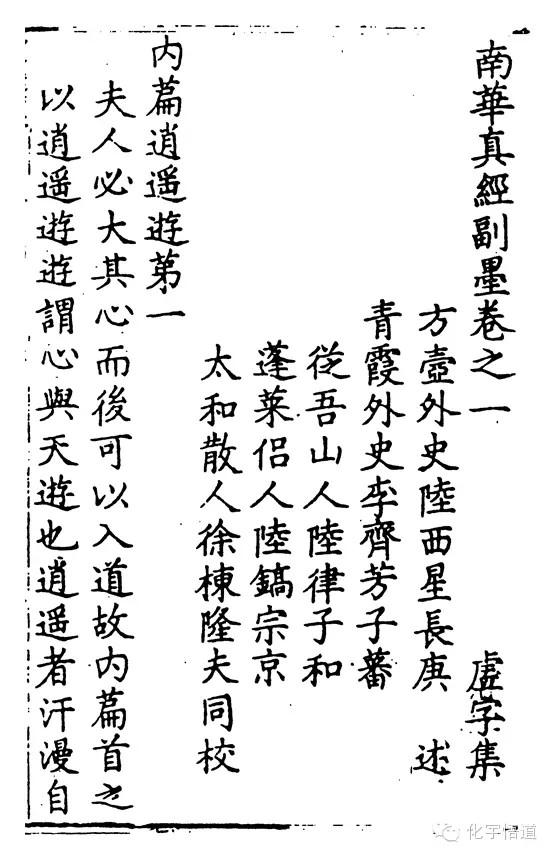 南華真經副墨卷之一 虛字集
方壺外史陸西星長庚 述
青霞外史李齊芳子蕃
從吾山人陸律子和
蓬萊侶人陸鎬宗京
太和散人徐棟隆夫同校
內篇逍遥遊第一
夫人必大其心而後可以入道故內篇首之
以逍遥遊遊謂心與天遊也逍遥者汗漫自
化宇悟道